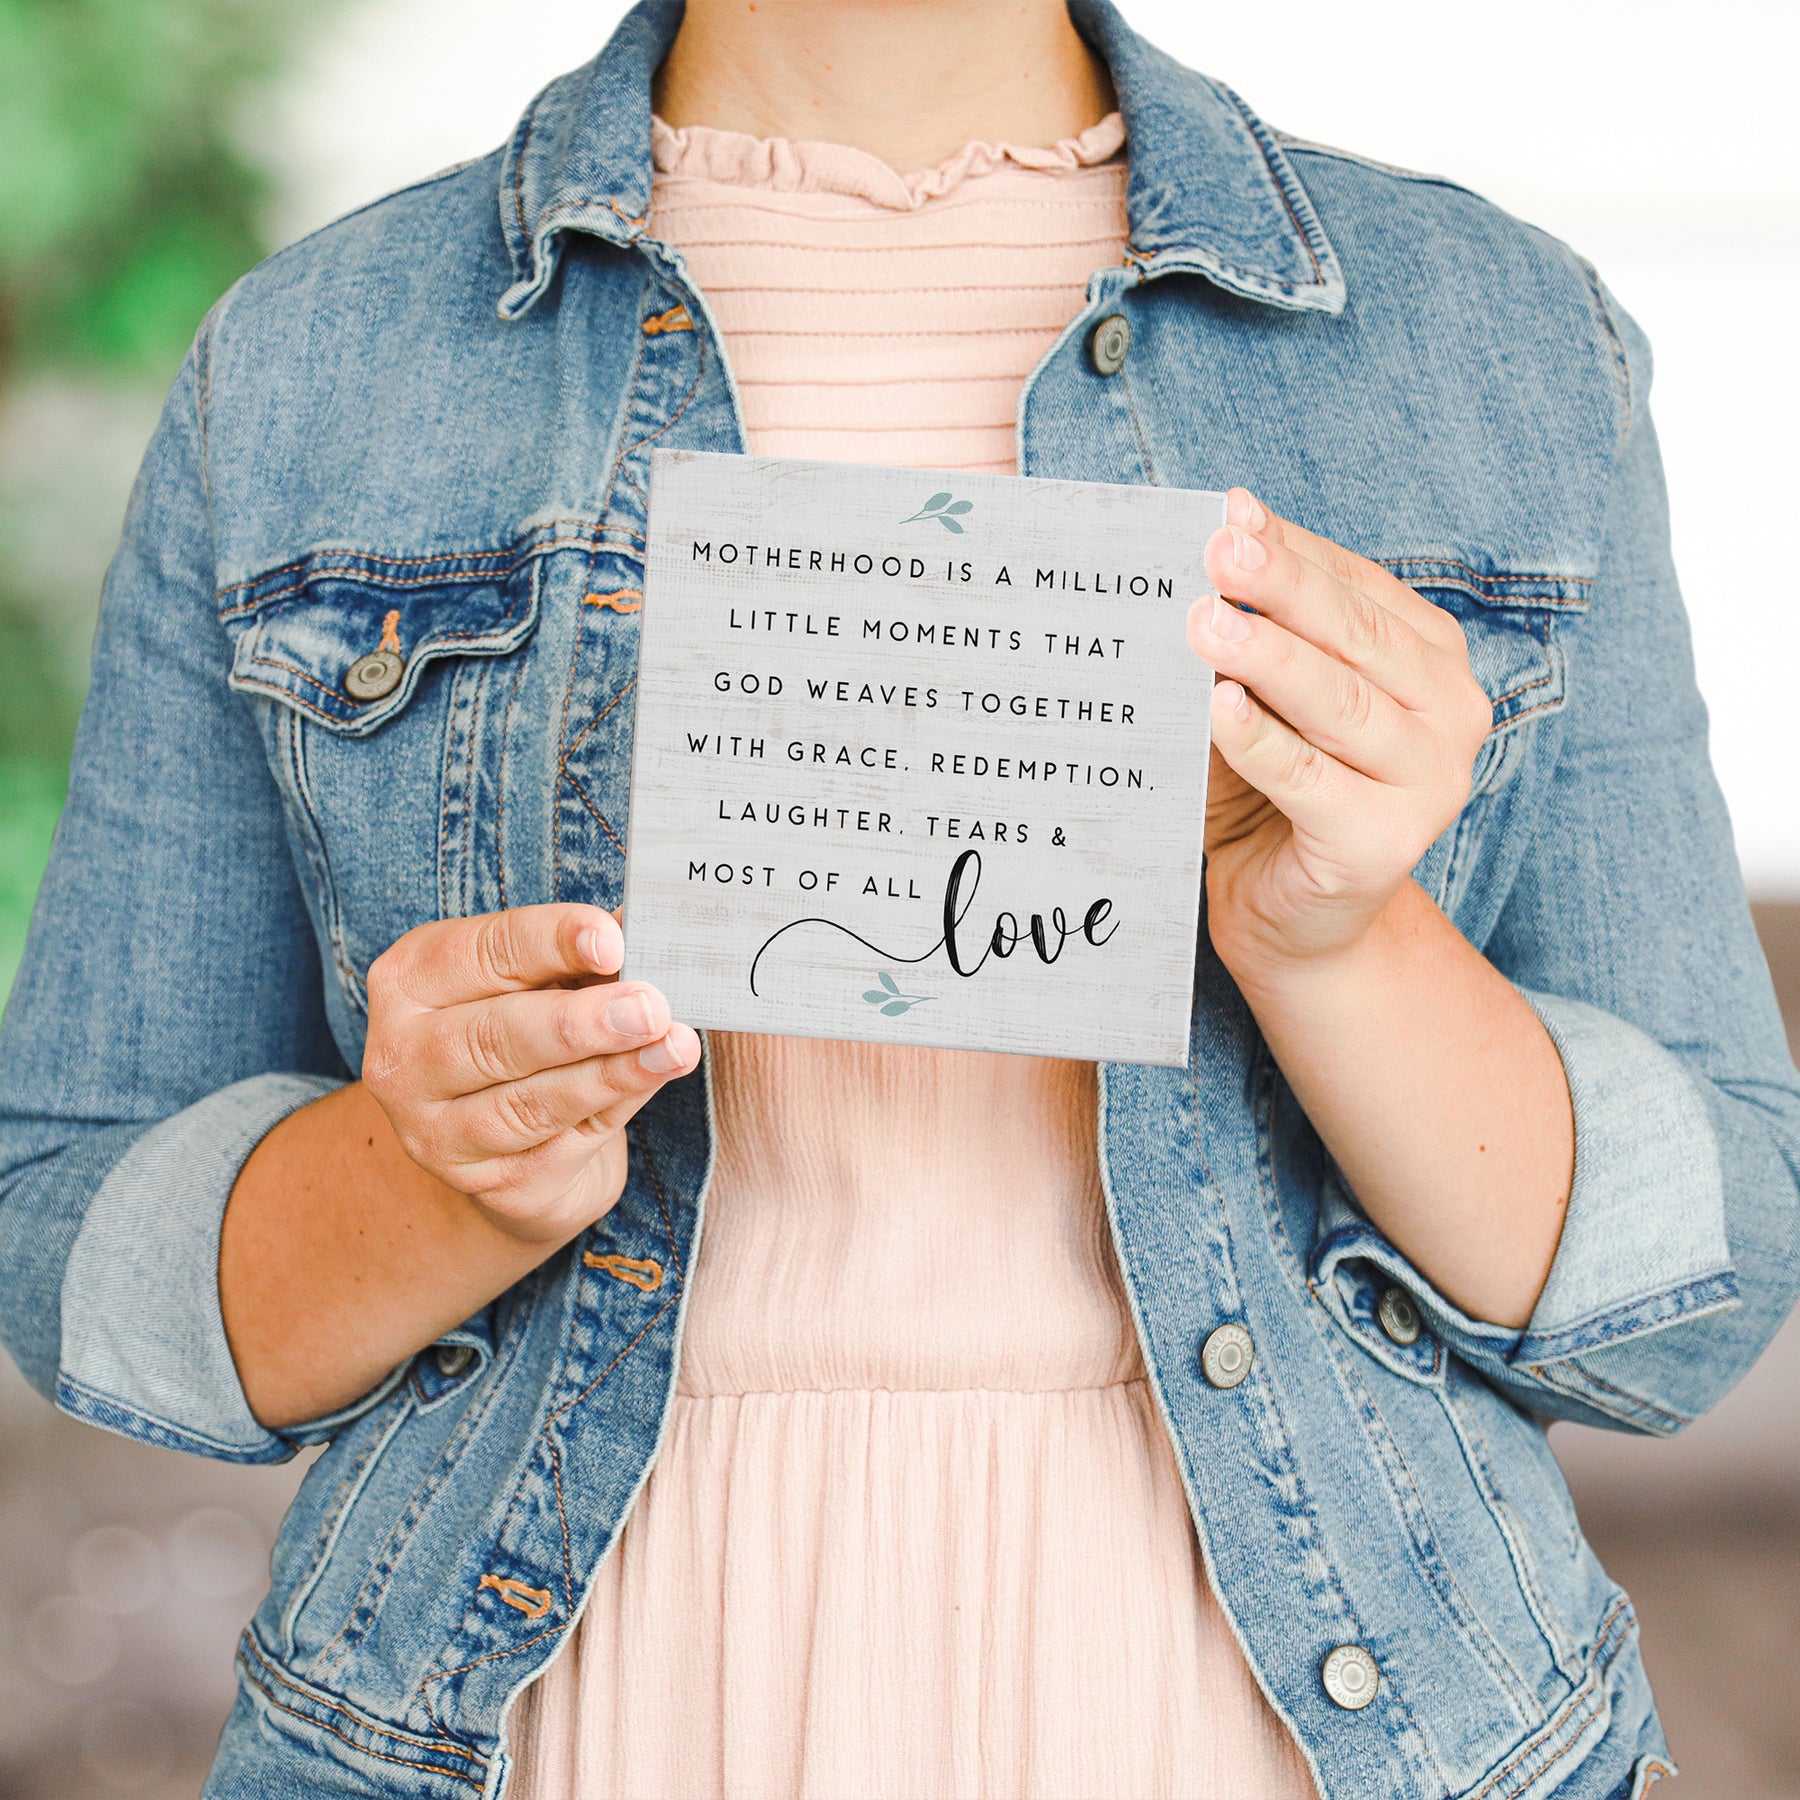 MOTHERHOOD IS A MILLION
LITTLE MOMENTS THAT
GOD WEAVES TOGETHER
WITH GRACE, REDEMPTION,
LAUGHTER, TEARS &
MOST OF ALL love
OLD NAVY